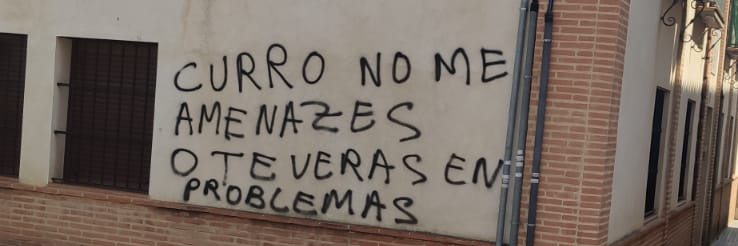 CURRO NO ME
AMENAZES
O TE VERAS EN
PROBLEMAS